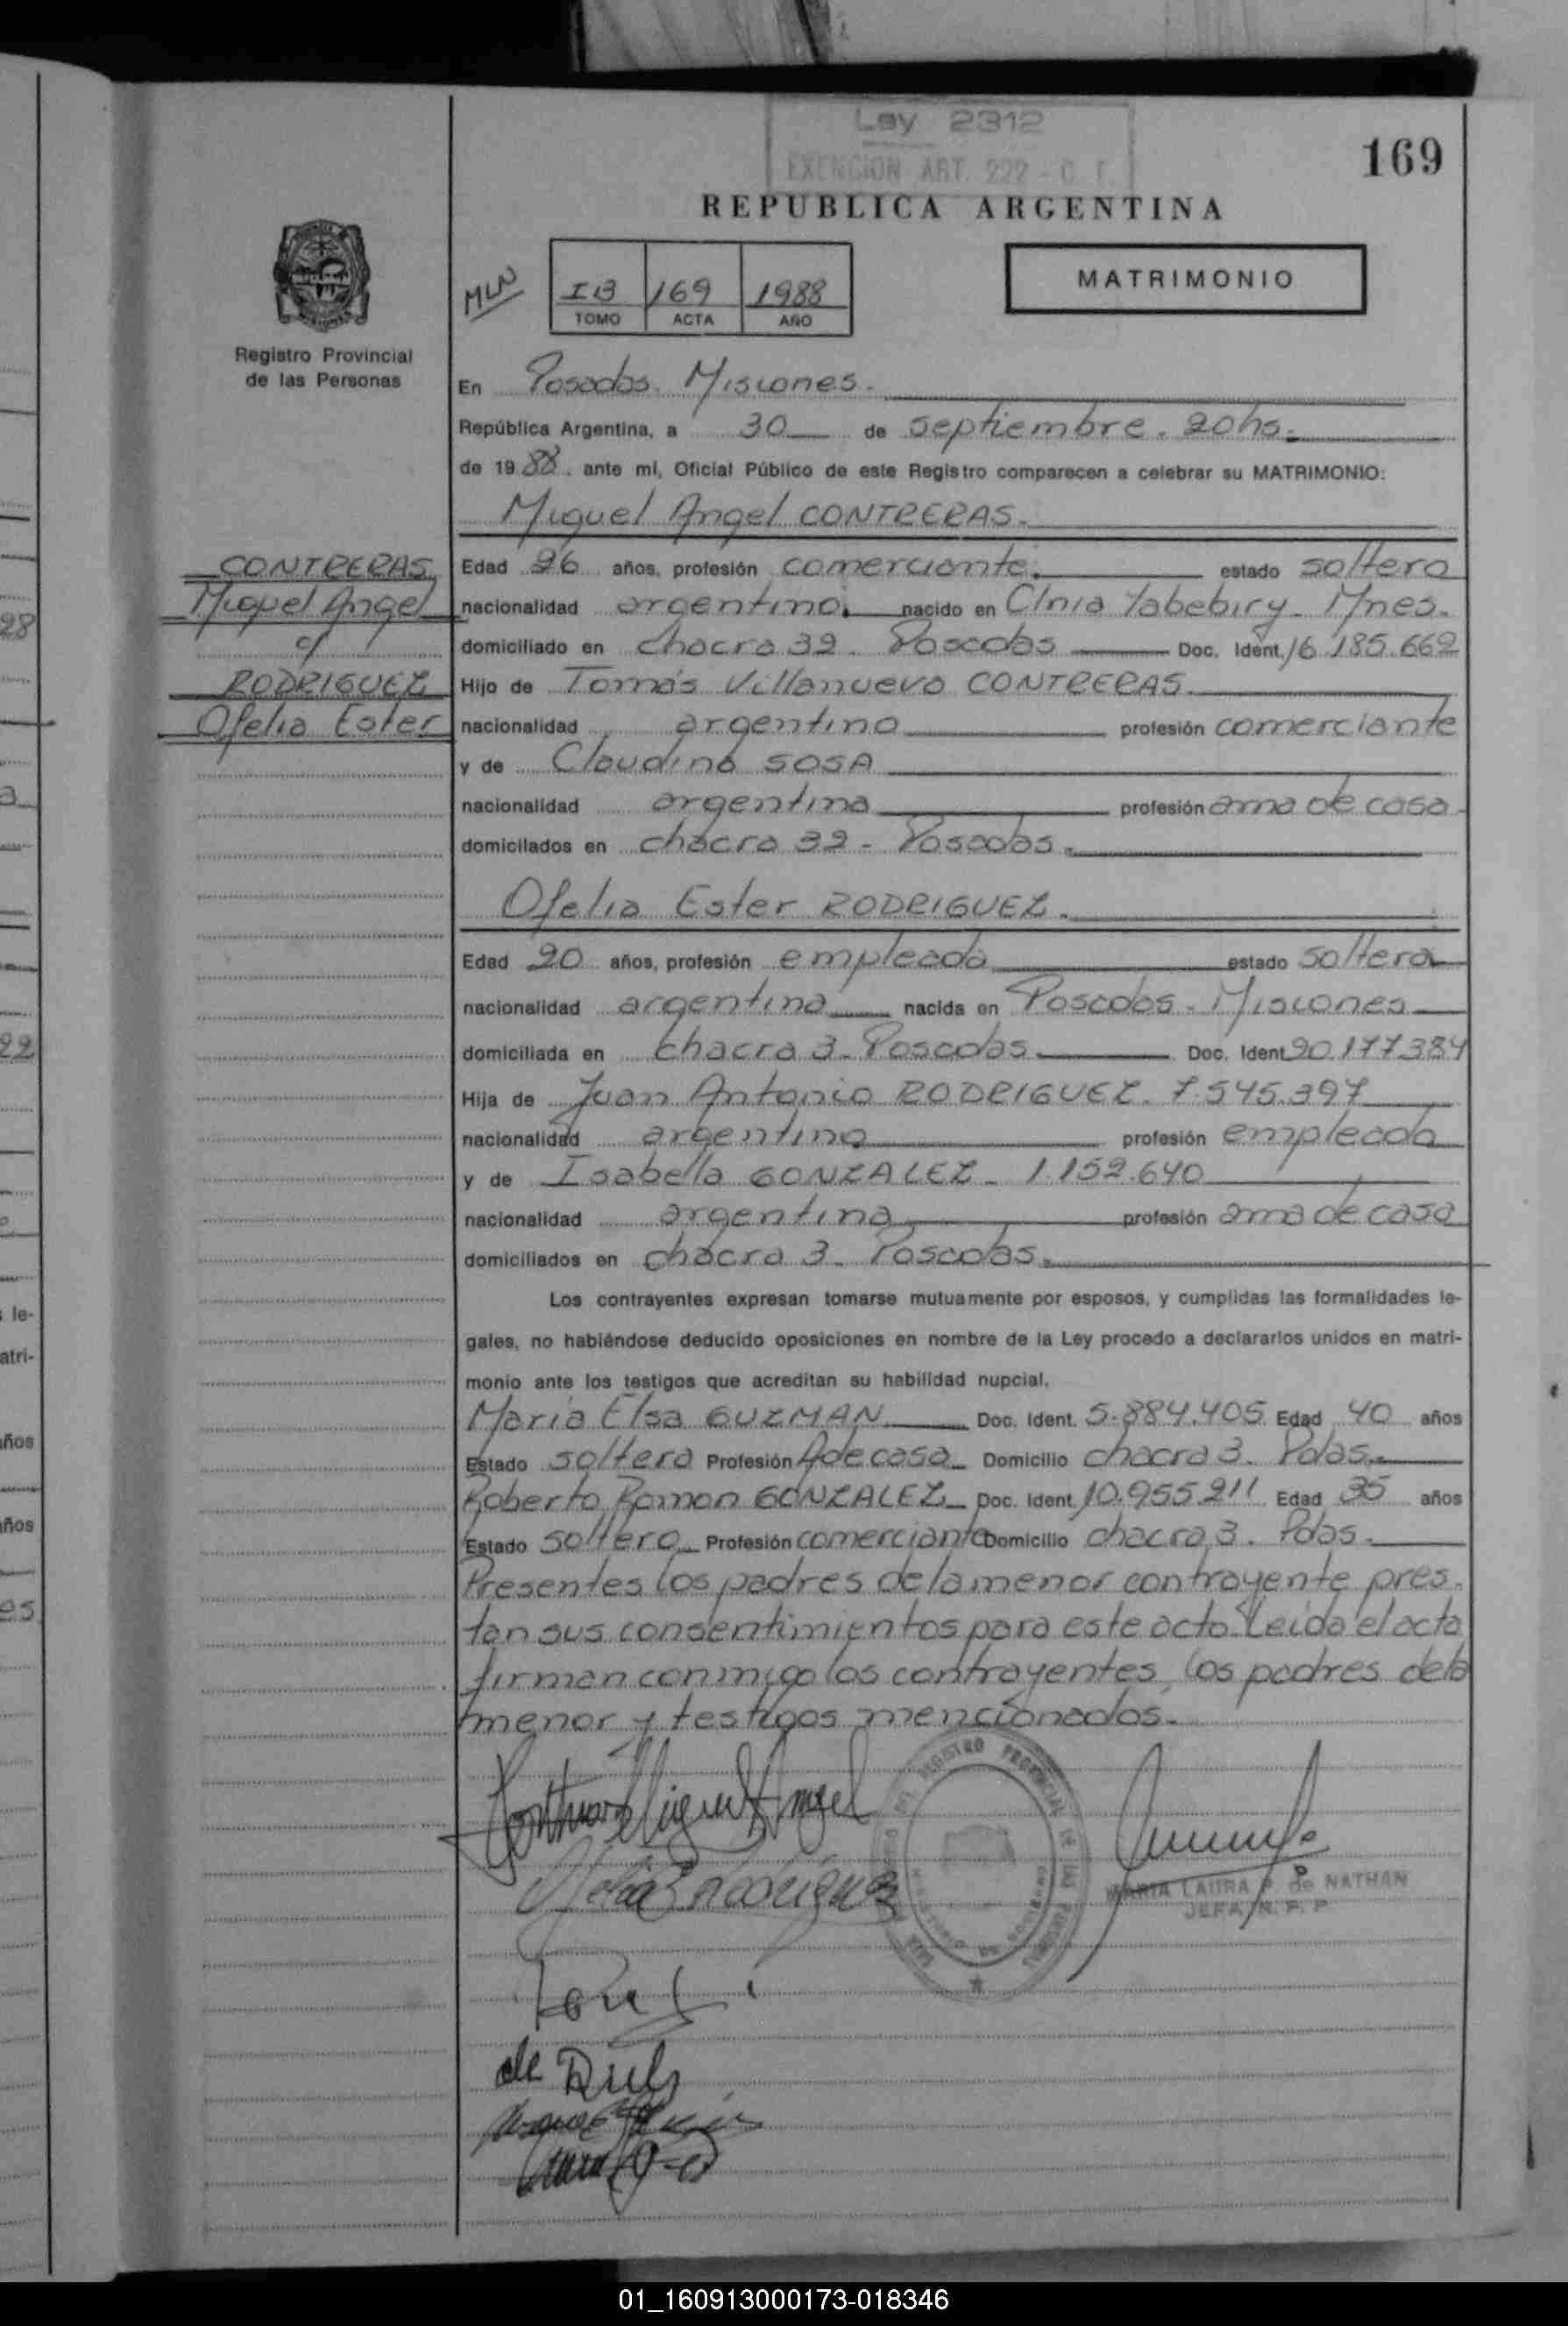 Ley 2312
EXENCION ART. 222 - C. F.
169
REPUBLICA ARGENTINA
MLN
IB 169 1988
TOMO ACTA AÑO
MATRIMONIO
Registro Provincial
de las Personas
En Posadas. Misiones.
República Argentina, a 30 de septiembre. 20hs.
de 1988. ante mí, Oficial Público de este Registro comparecen a celebrar su MATRIMONIO:
Miguel Angel CONTRERAS.
CONTRERAS
Miguel Angel
c/
RODRIGUEZ
Ofelia Ester
Edad 26 años, profesión comerciante. estado soltero
nacionalidad argentino. nacido en Clnia Yabebiry. Mnes.
domiciliado en chacra 32. Posadas Doc. Ident. 16.185.662
Hijo de Tomás Villanueva CONTRERAS
nacionalidad argentino profesión comerciante
y de Claudina SOSA
nacionalidad argentina profesión ama de casa.
domicilados en chacra 32 - Posadas.
Ofelia Ester RODRIGUEZ.
Edad 20 años, profesión empleada estado soltera
nacionalidad argentina nacida en Posadas - Misiones
domiciliada en chacra 3. Posadas. Doc. Ident. 20.177.384
Hija de Juan Antonio RODRIGUEZ. 7.545.397
nacionalidad argentino profesión empleado
y de Isabella GONZALEZ - 1.152.640
nacionalidad argentina profesión ama de casa
domiciliados en chacra 3. Posadas.
Los contrayentes expresan tomarse mutuamente por esposos, y cumplidas las formalidades le-
gales, no habiéndose deducido oposiciones en nombre de la Ley procedo a declararlos unidos en matri-
monio ante los testigos que acreditan su habilidad nupcial.
María Elsa GUZMAN Doc. Ident. 5.884.405 Edad 40 años
Estado soltera Profesión A de casa Domicilio chacra 3. Pdas.
Roberto Ramon GONZALEZ Doc. Ident. 10.955.211 Edad 35 años
Estado soltero Profesión comerciante Domicilio chacra 3. Pdas.
Presentes los padres de la menor contrayente pres-
tan sus consentimientos para este acto. Leida el acta
firman conmigo los contrayentes, los padres de la
menor y testigos mencionados.
Contreras Miguel Angel
Ofelia E Rodriguez
REGISTRO PROVINCIAL DE LAS PERSONAS
MARIA LAURA P. de NATHAN
JEFA R. P. P
01_160913000173-018346